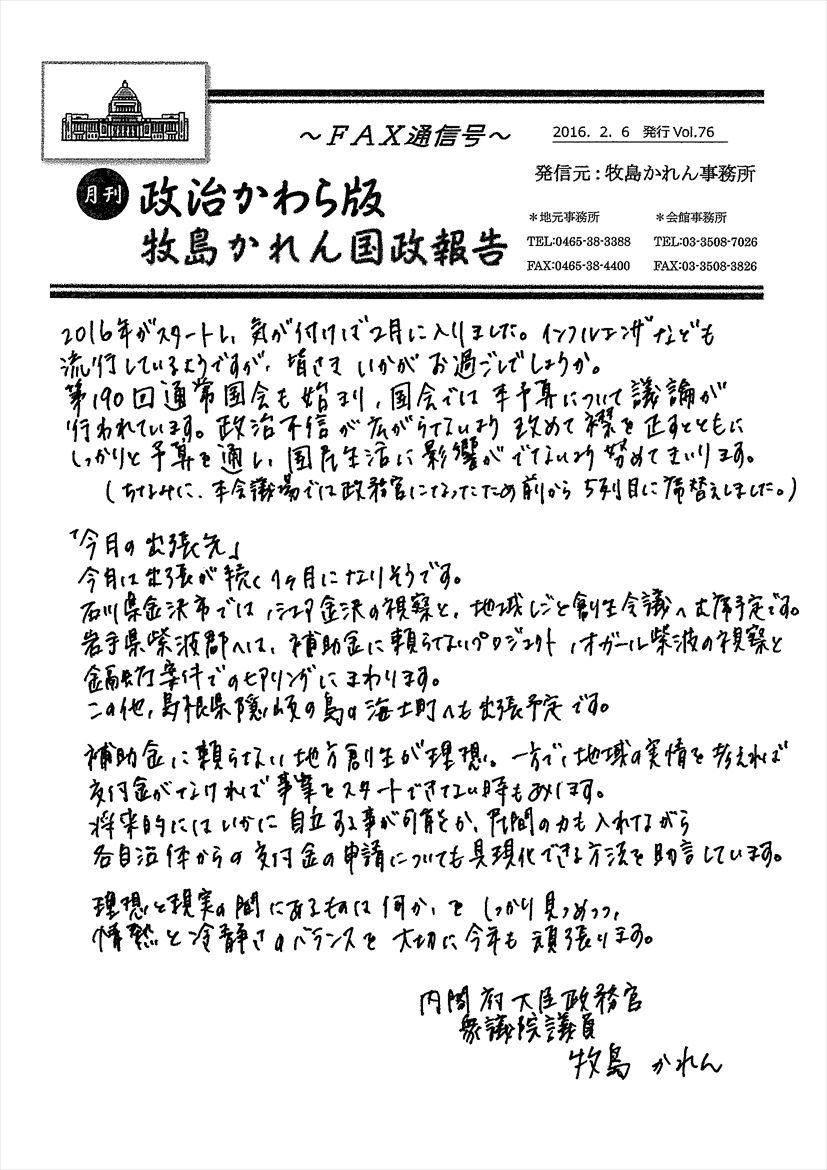 ～FAX通信号～
2016. 2. 6 発行 Vol.76
発信元：牧島かれん事務所
月刊 政治かわら版
牧島かれん国政報告
＊地元事務所 ＊会館事務所
TEL:0465-38-3388 TEL:03-3508-7026
FAX:0465-38-4400 FAX:03-3508-3826
2016年がスタートし、気が付けば2月に入りました。インフルエンザなども
流行しているようですが、皆さま いかがお過ごしでしょうか。
第190回通常国会も始まり、国会では 本予算について議論が
行われています。政治不信が広がらないよう 改めて襟を正すとともに
しっかりと予算を通し、国民生活に影響がでないよう努めてまいります。
(ちなみに、本会議場では政務官になったため前から5列目に席替えしました。)
「今月の出張先」
今月は出張が続く1ヶ月になりそうです。
石川県金沢市では、シェア金沢の視察と、地域しごと創生会議へ出席予定です。
岩手県紫波郡へは、補助金に頼らないプロジェクト、オガール紫波の視察と
金融庁案件でのヒアリングにまわります。
この他、島根県隠岐の島の海士町へも出張予定です。
補助金に頼らない地方創生が理想。一方で、地域の実情を考えれば
交付金がなければ事業をスタートできない時もあります。
将来的にはいかに自立する事が可能か、民間の力も入れながら
各自治体からの交付金の申請についても具現化できる方法を助言しています。
理想と現実の間にあるものは何か、を しっかり見つめつつ、
情熱と冷静さのバランスを大切に今年も頑張ります。
内閣府大臣政務官
衆議院議員
牧島かれん